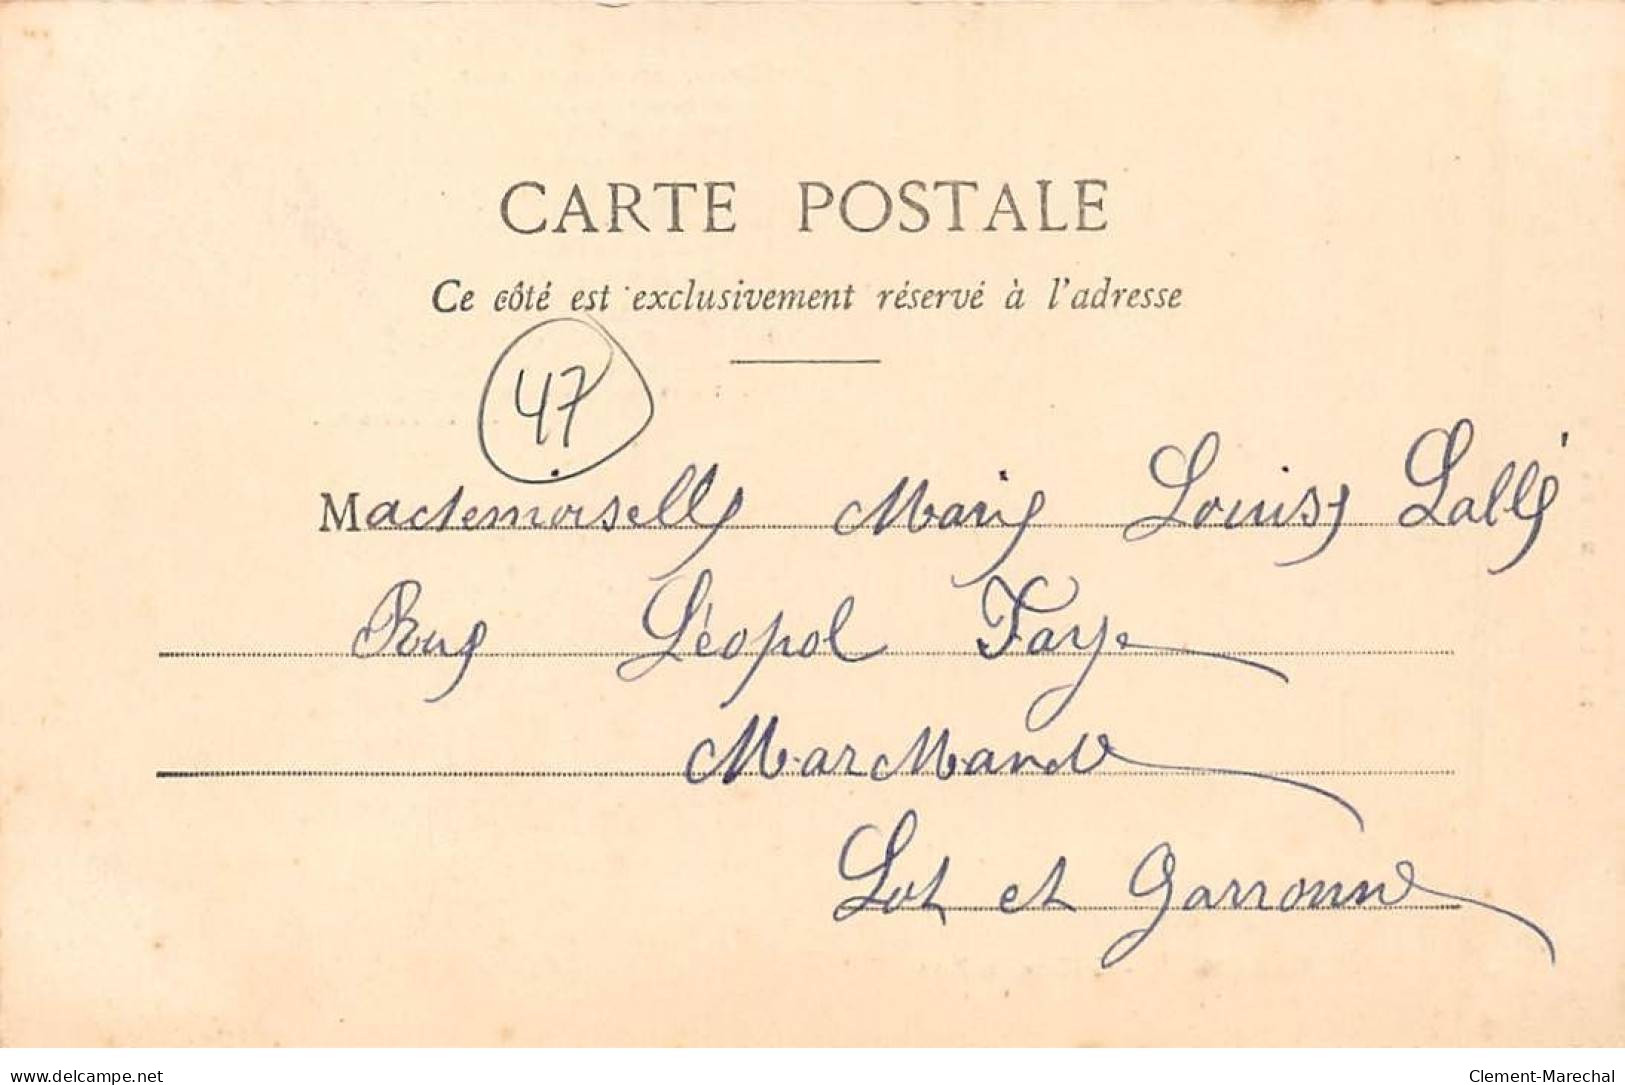 CARTE POSTALE
Ce côté est exclusivement réservé à l'adresse
47
Mademoiselle Marie Louise Lallé
Rue Léopol Faye
Marmande
Lot et Garronne
delcampe.net
Clement-Marechal